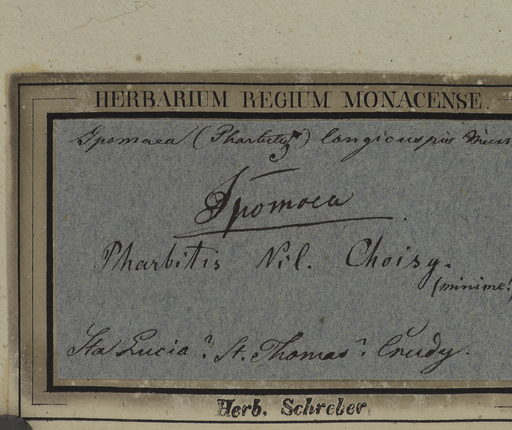 HERBARIUM REGIUM MONACENSE.
Ipomaea (Pharbitis) longicuspis Meisn
Ipomoea
Pharbitis Nil. Choisy.
(minime!)
Sta Lucia? St. Thomas? Crudy.
Herb. Schreber